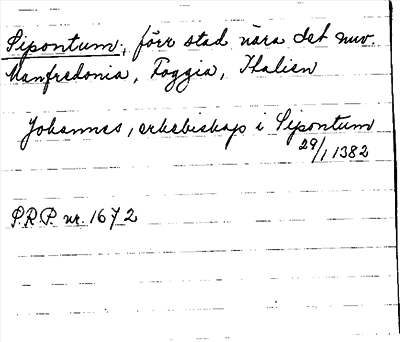 Sipontum, förr stad nära det nuv.
Manfredonia, Foggia, Italien
Johannes, erkebiskop i Sipontum
29/1 1382
P.R.P. nr. 1672